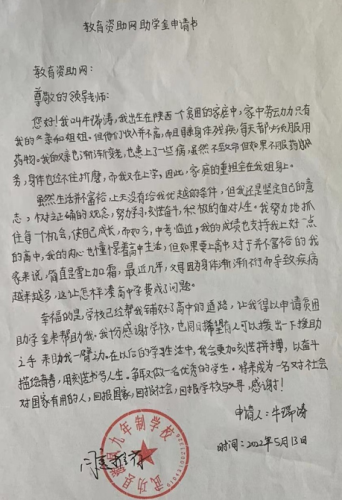 教育资助网助学金申请书
教育资助网：
尊敬的领导老师：
您好！我叫牛瑞涛，我出生在陕西一个贫困的家庭中，家中劳动力只有
我的父亲和姐姐。但他们收入并不高，而且身体残疾，每天都需服用
药物。我的父亲也渐渐变老，也患上了一些病，虽然不致命但如果不服药
身体也经不住折磨，而我又在上学，因此，家庭的重担全在我姐身上。
虽然生活不富裕，上天没有给我优越的条件，但我还是坚定自己的意
志，树立正确的观念，努力学习，刻苦奋斗，积极的面对人生。我努力地抓
住每一个机会，使自己成长，而如今，中考临近，我的成绩也支持我上好一点
的高中，我的内心也憧憬着高中生活，但如果要上高中对于并不富裕的我
家来说，简直是雪上加霜，最近几年，父母因为身体渐渐不行而导致疾病
越来越多，这让怎样凑高中学费成了问题。
幸福的是，学校已经帮我铺好了高中的道路，让我得以申请贫困
助学金来帮助我。我十分感谢学校，也同样希望有人可以拨出一下援助
之手来助我一臂之力。在以后的学生活中，我会更加刻苦拼搏，以奋斗
描绘青春，用刻苦书写人生。争取做一名优秀的学生，将来成为一名对社会
对国家有用的人，回报国家，回报社会，回报学校与父母，感谢！
申请人：牛瑞涛
时间：2022年5月13日
武功县
九年制学校